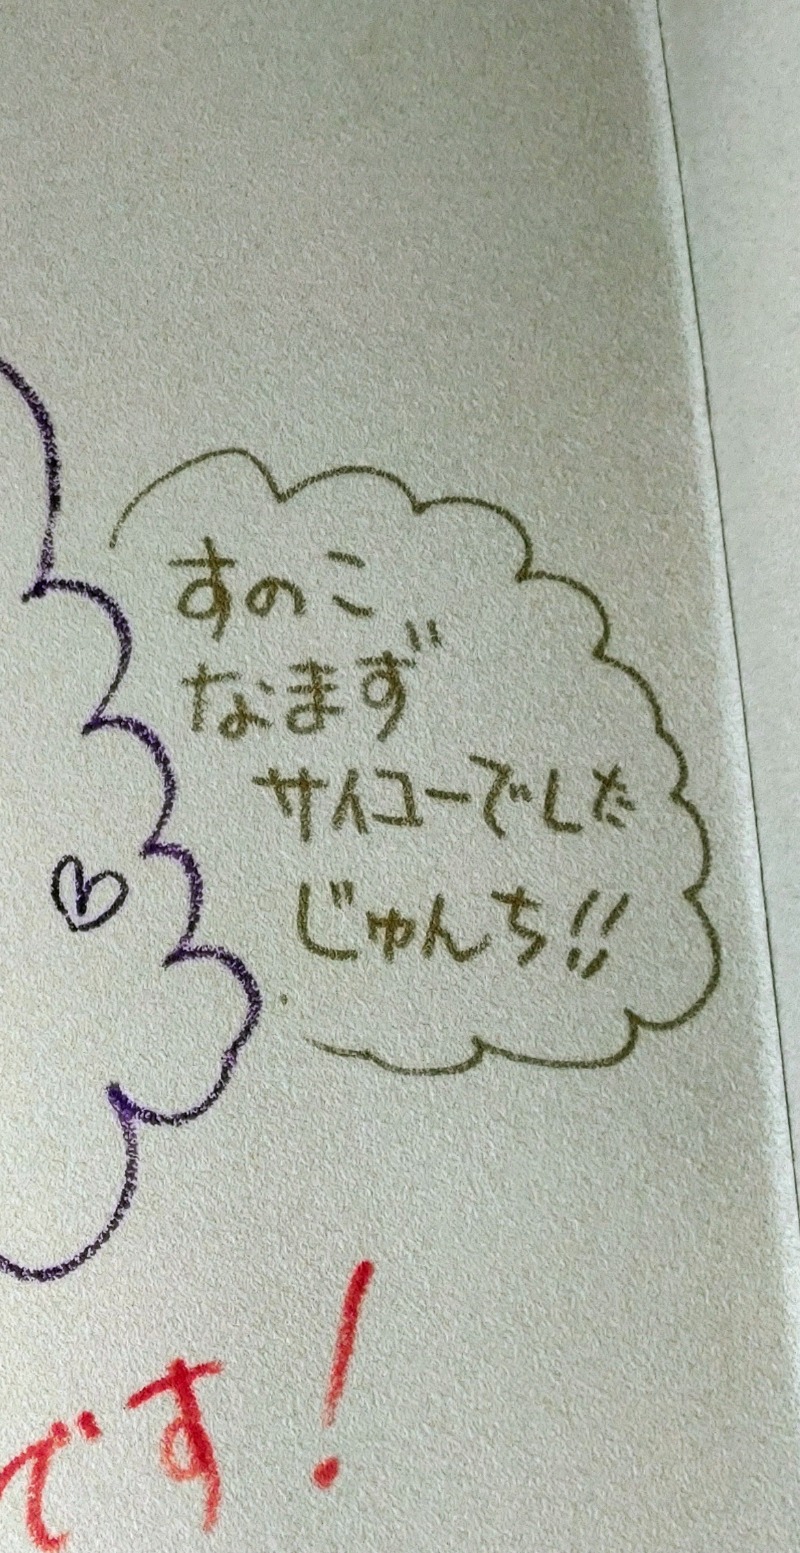 すのこ
なまず
サイコーでした
じゅんち!!
です!